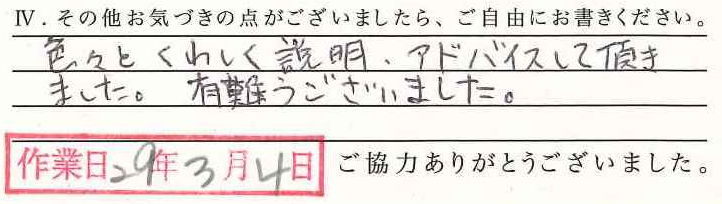 Ⅳ．その他お気づきの点がございましたら、ご自由にお書きください。
色々とくわしく説明、アドバイスして頂き
ました。 有難うございました。
作業日29年3月4日 ご協力ありがとうございました。